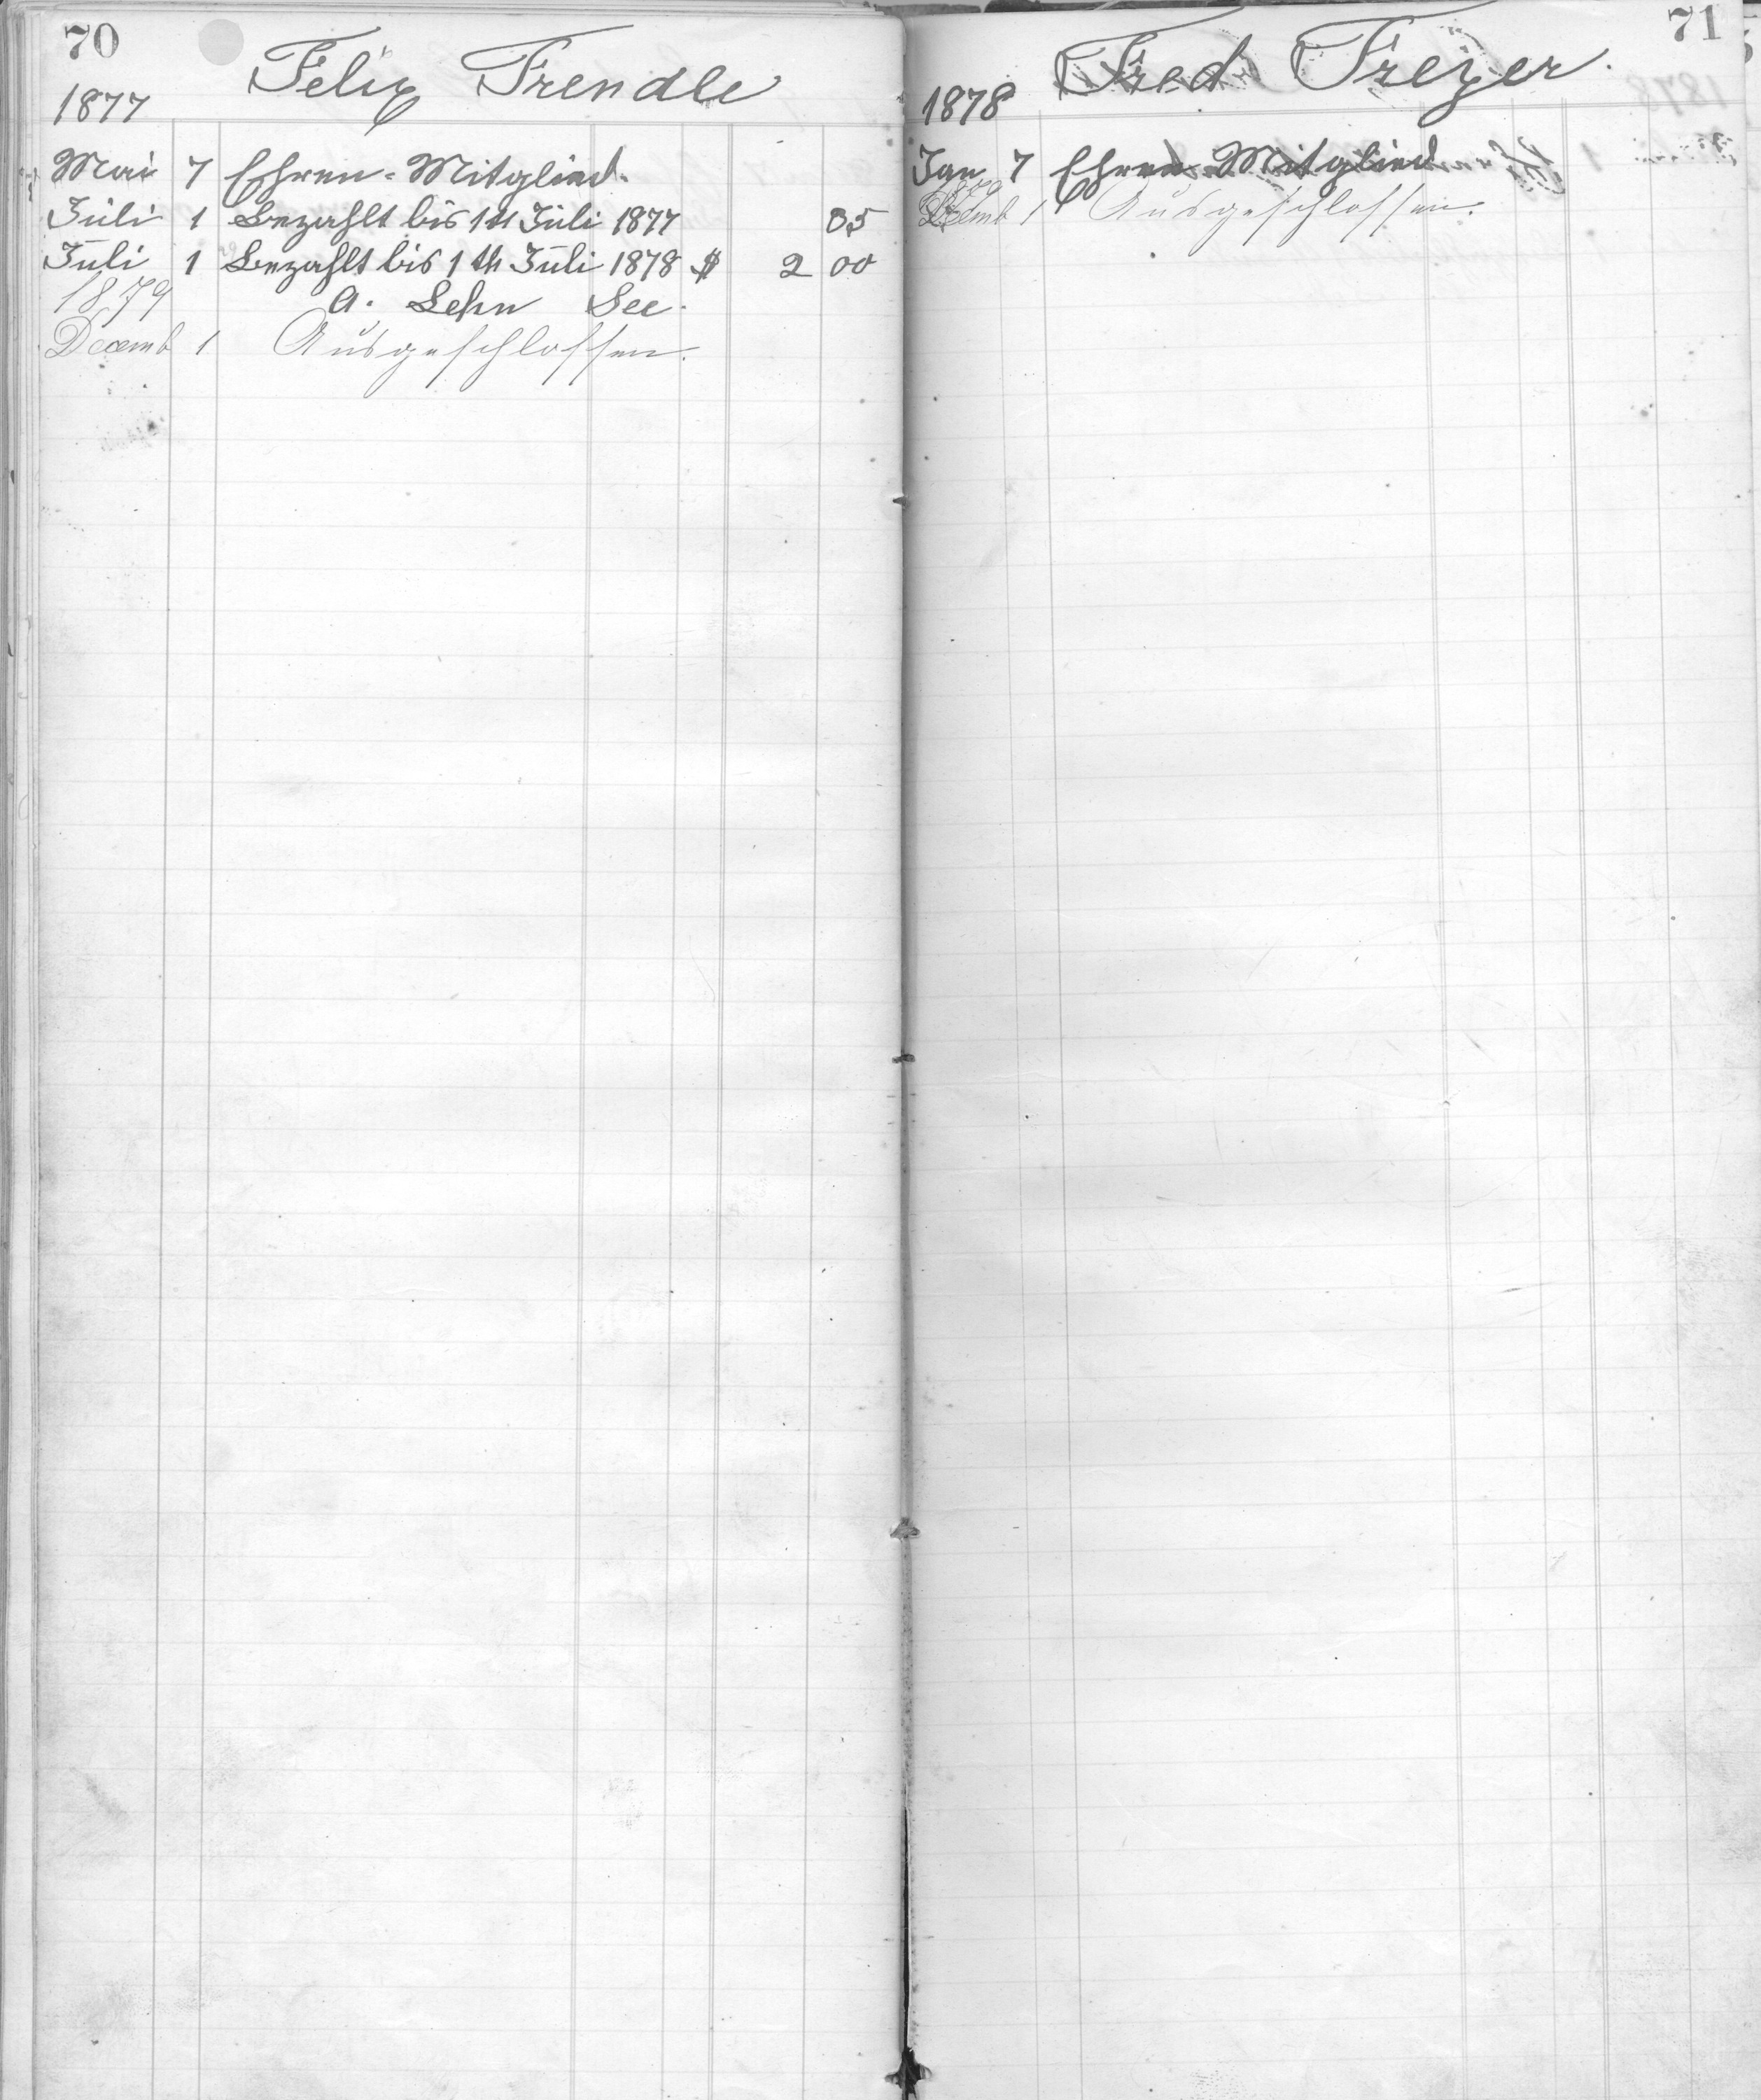 70
Felix Trendle
1877
Mai 7 Ehren-Mitglied.
Juli 1 Bezahlt bis 1th Juli 1877 35
Juli 1 Bezahlt bis 1th Juli 1878 $ 2 00
A. Lehn Sec.
1879
Decemb 1 Ausgeschlossen.
71
Fred Freyer.
1878
Jan 7 Ehren-Mitglied
1879
Decemb 1 Ausgeschlossen.